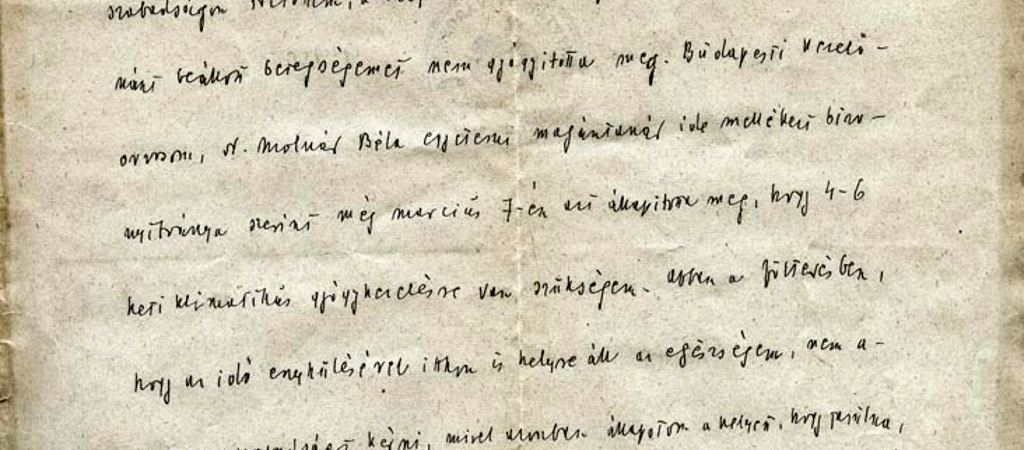 szabadságom
miatt beállott betegségemet nem gyógyította meg. Budapesti kezelő-
orvosom, dr. Molnár Béla egyetemi magántanár ide mellékelt bizo-
nyítványa szerint még március 7-én azt állapította meg, hogy 4-6
heti klimatikus gyógykezelésre van szükségem. Abban a feltevésben,
hogy az idő enyhülésével itthon is helyre áll az egészségem, nem a-
kérni, mivel azonban állapotom a helyett, hogy javulna,